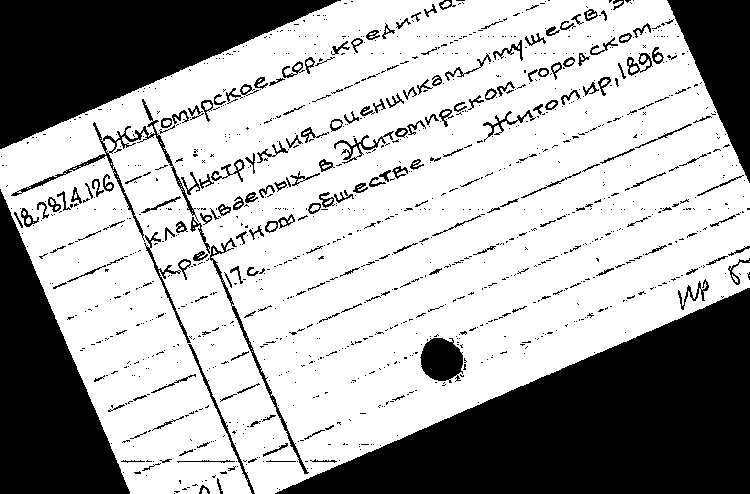 Житомирское гор. кредитно
18.287.4.126
Инструкция оценщикам имуществ, з
кладываемых в Житомирском городском
кредитном обществе. Житомир, 1896.
17 с.